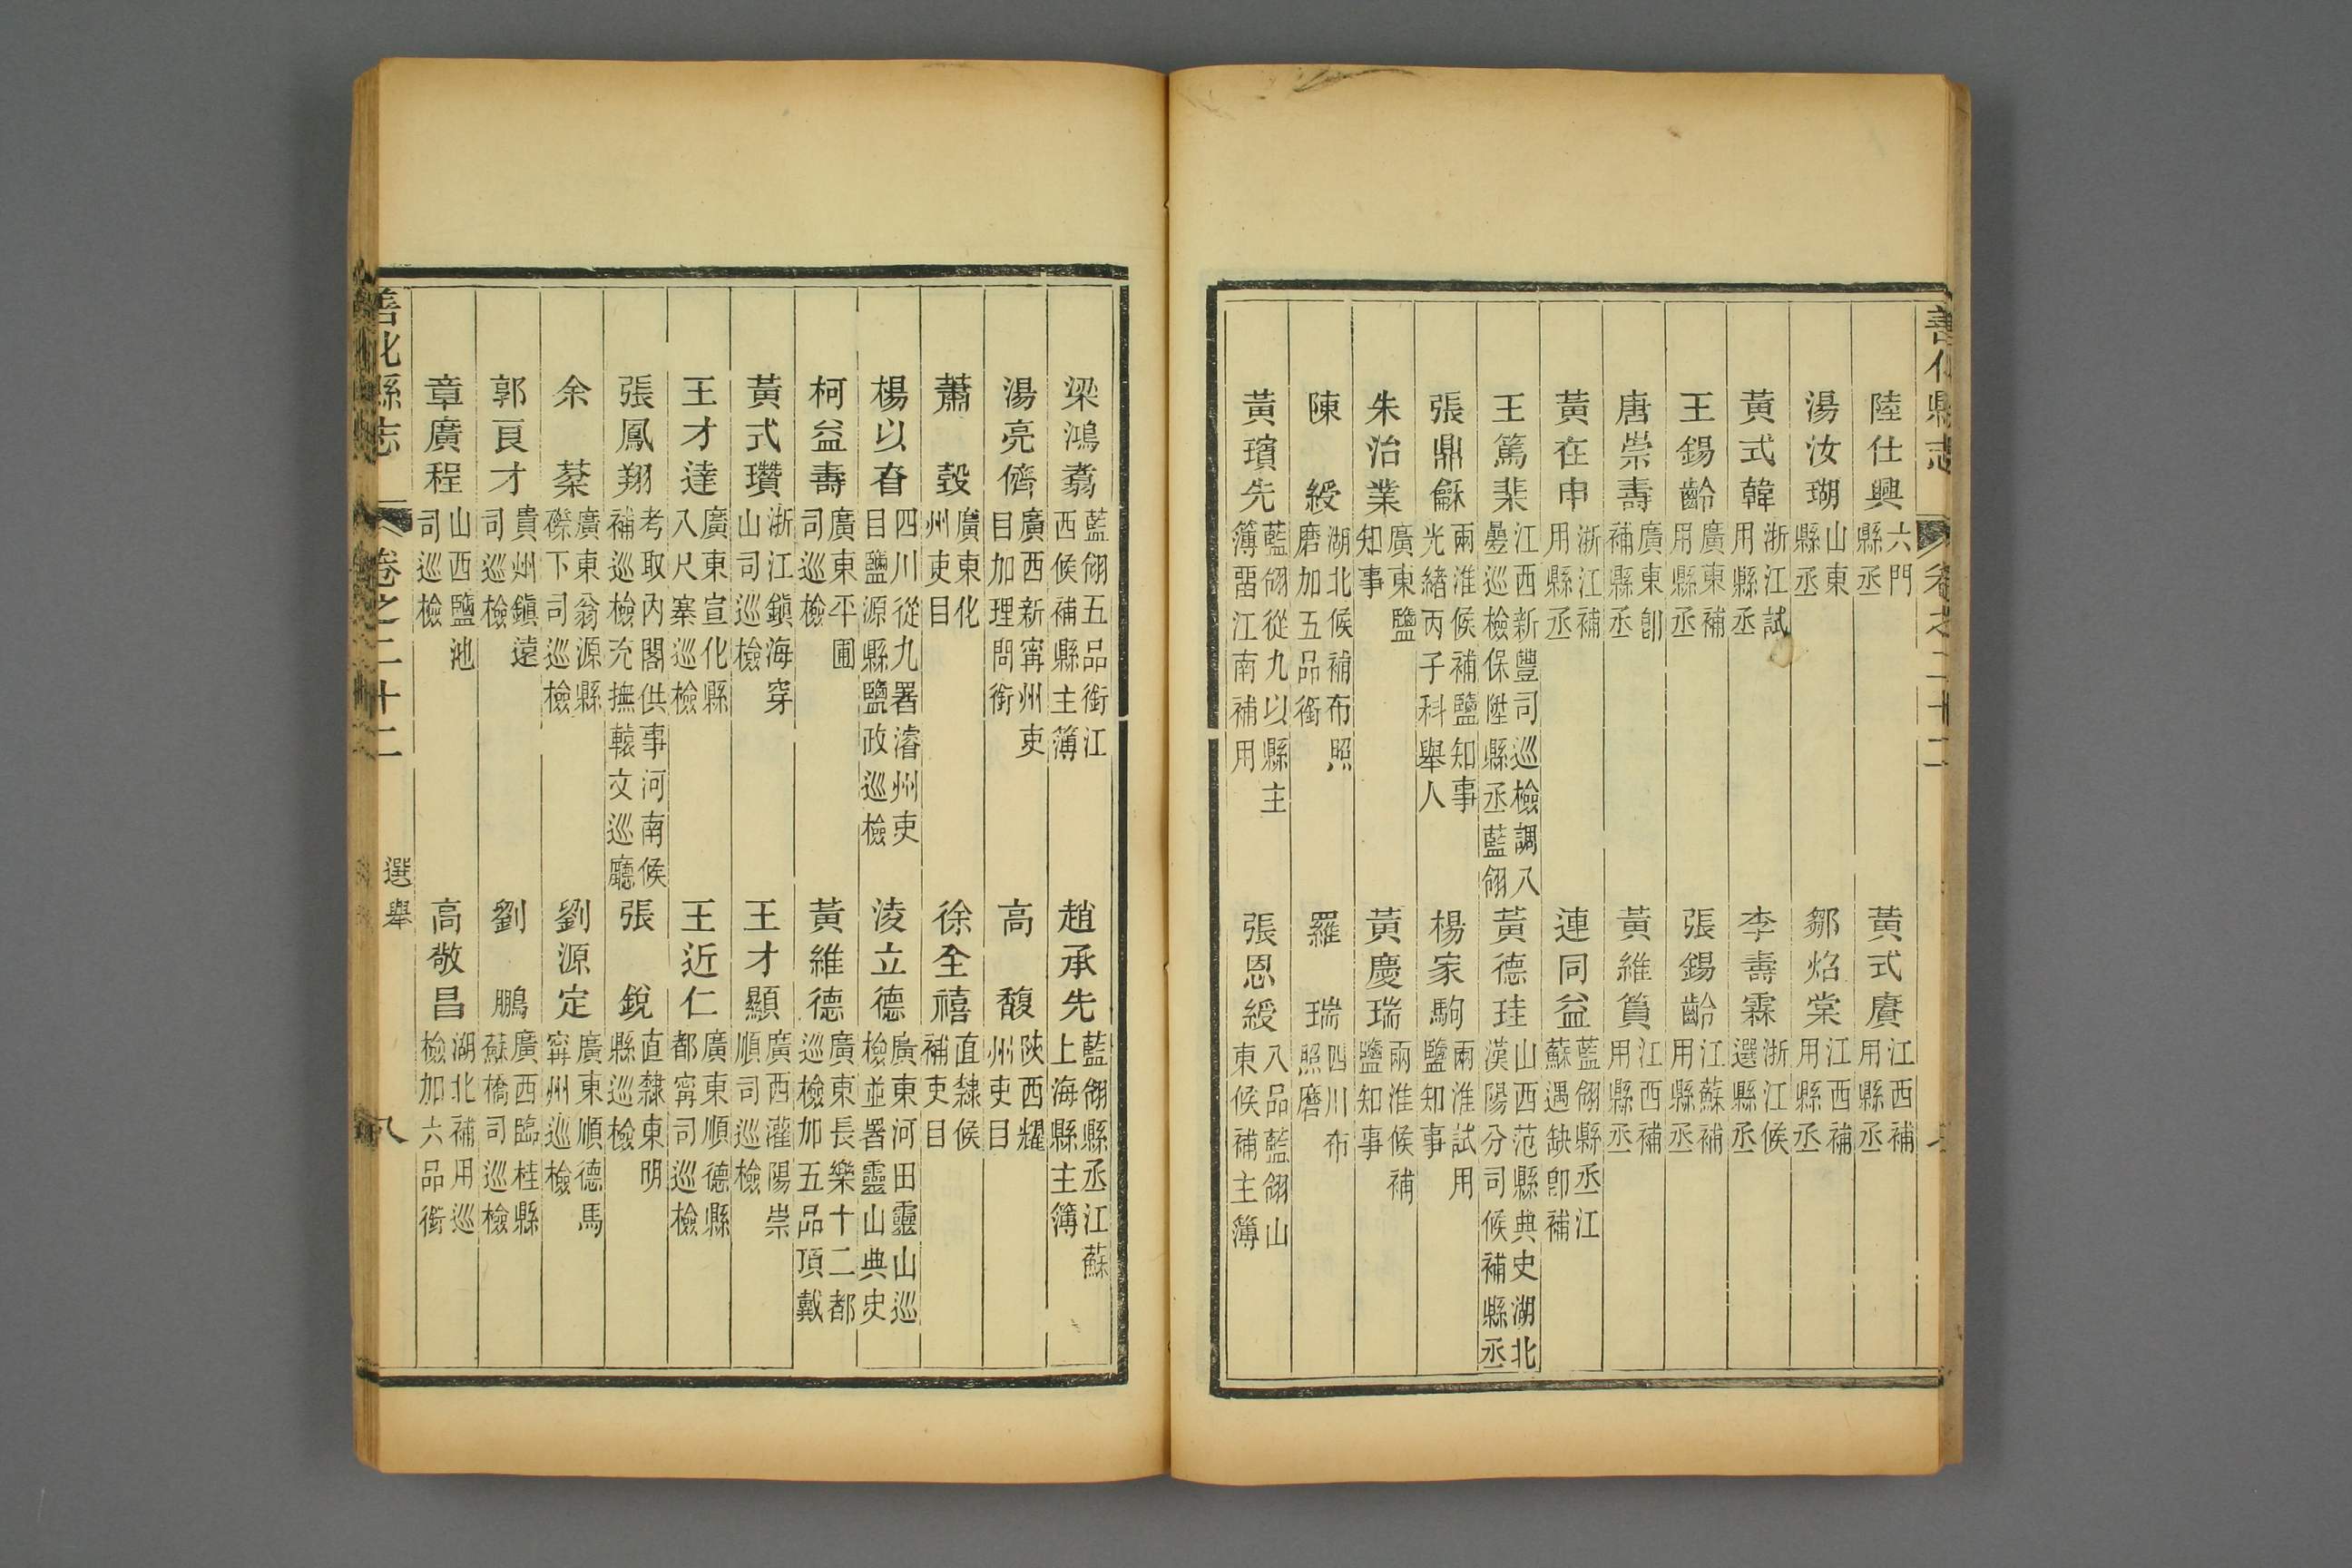 善化縣志 卷之二十二
陸仕興 六門縣丞 黃式賡 江西補用縣丞
湯汝瑚 山東縣丞 鄒焰棠 江西補用縣丞
黃式韓 浙江試用縣丞 李壽霖 浙江候選縣丞
王錫齡 廣東補用縣丞 張錫齡 江蘇補用縣丞
唐崇壽 廣東卽補縣丞 黃維篔 江西補用縣丞
黃在申 浙江補用縣丞 連同益 藍翎縣丞江蘇遇缺卽補
王篤棐 江西新豐司巡檢調八疊巡檢保陞縣丞藍翎 黃德珪 山西范縣典史湖北漢陽分司候補縣丞
張鼎龢 兩淮候補鹽知事光緒丙子科舉人 楊家駒 兩淮試用鹽知事
朱治業 廣東鹽知事 黃慶瑞 兩淮候補鹽知事
陳 綬 湖北候補布照磨加五品銜 羅 瑞 四川布照磨
黃璸先 藍翎從九以縣主簿畱江南補用 張恩綬 八品藍翎山東候補主簿
梁鴻翥 藍翎五品銜江西候補縣主簿 趙承先 藍翎縣丞江蘇上海縣主簿
湯亮儕 廣西新甯州吏目加理問銜 高 馥 陝西耀州吏目
蕭 瑴 廣東化州吏目 徐全禧 直隸候補吏目
楊以春 四川從九署濬州吏目鹽源縣鹽政巡檢 淩立德 廣東河田靈山巡檢並署靈山典史
柯益壽 廣東平圃司巡檢 黃維德 廣東長樂十二都巡檢加五品頂戴
黃式瓚 浙江鎭海穿山司巡檢 王才顯 廣西灌陽崇順司巡檢
王才達 廣東宣化縣八尺寨巡檢 王近仁 廣東順德縣都甯司巡檢
張鳳翔 考取內閣供事河南候補巡檢充撫轅文巡廳 張 銳 直隸東明縣巡檢
余 棻 廣東翁源縣磜下司巡檢 劉源定 廣東順德馬甯州巡檢
郭良才 貴州鎭遠司巡檢 劉 鵬 廣西臨桂縣蘇橋司巡檢
章廣程 山西鹽池司巡檢 高敬昌 湖北補用巡檢加六品銜
善化縣志 卷之二十二 選舉 八